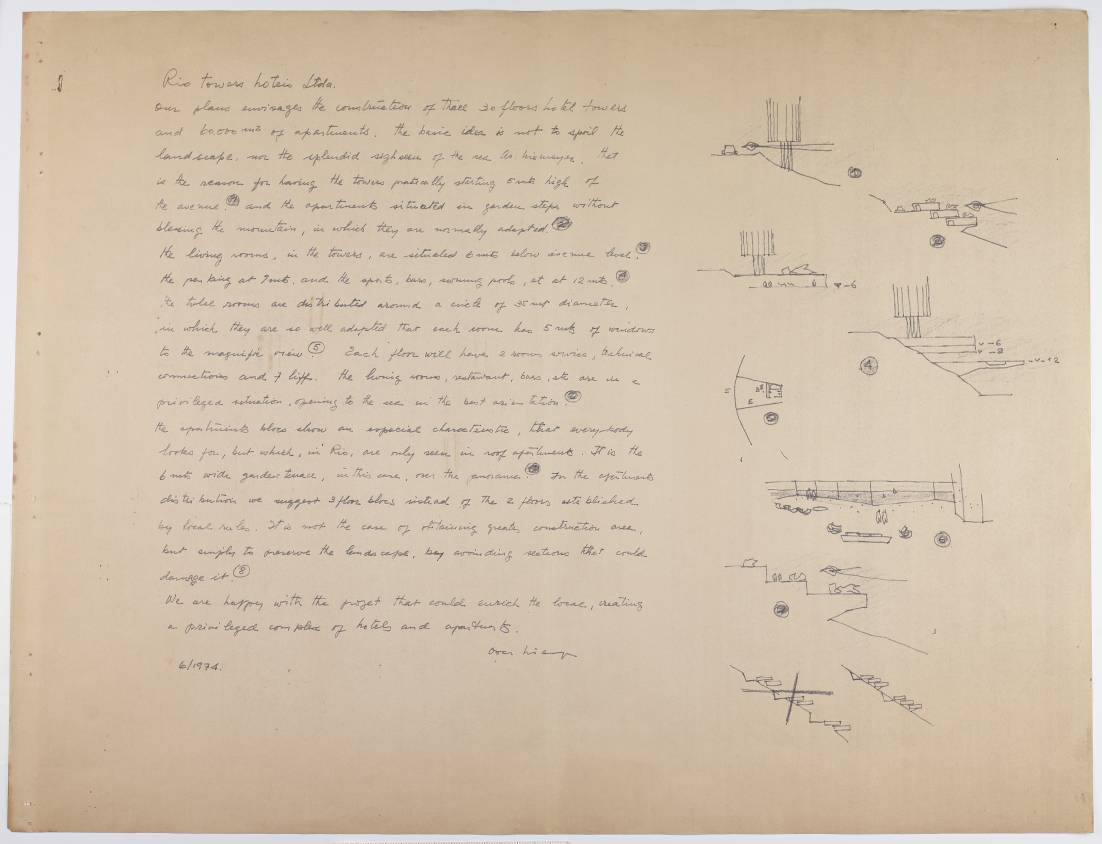 Rio towers hoteis Ltda.
Our plans envisages the construction of three 30 floors hotel towers
and 60.000 m2 of apartments. The basic idea is not to spoil the
landscape, nor the splendid of the sea Av. Niemeyer. That
is the reason for having the towers pratically starting 5 mts high of
the avenue. 1 and the apartments situated in garden steps without
the mountain, in which they are normally adapted. 2
The living rooms, in the towers, are situated 6 mts below avenue level. 3
the parking at 9 mts. and the sports, bars, pools, at 12 mts. 4
The hotel rooms are distributed around a circle of 35 mt diameter,
in which they are so well adapted that each room has 5 mts of windows
to the view. 5 Each floor will have 2 rooms service, technical
connections and 7 lifts. The living rooms, restaurant, bars, etc are in a
privileged situation, opening to the sea in the best orientation. 6
The apartments blocs show an especial characteristic, that everybody
looks for, but which, in Rio, are only seen in roof apartments. It is the
6 mts wide garden terrace, in this case, over the panorama. 7 For the apartments
distribution we suggest 3 floor blocs instead of the 2 floors established
by local rules. It is not the case of obtaining greater construction area,
but simply to preserve the landscape, by avoinding sections that could
damage it. 8
We are happy with the projet that could enrich the local, creating
a privileged complex of hotels and apartments.
6/1974.
1
2
-6
-6
-12
4
5
6
7